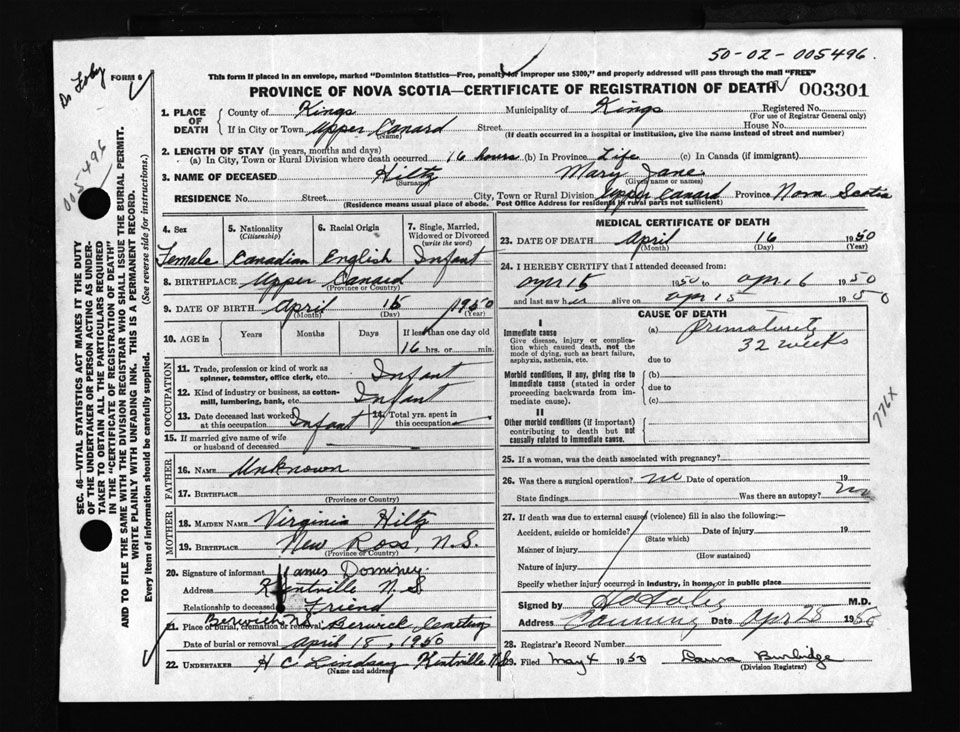 50-02-005496
FORM 6
This form if placed in an envelope, marked "Dominion Statistics—Free, penalty for improper use $300," and properly addressed will pass through the mail "FREE"
PROVINCE OF NOVA SCOTIA—CERTIFICATE OF REGISTRATION OF DEATH 003301
1. PLACE OF DEATH County of Kings Municipality of Kings Registered No.
(For use of Registrar General only)
If in City or Town Upper Canard Street House No.
(Name) (If death occurred in a hospital or institution, give the name instead of street and number)
2. LENGTH OF STAY (in years, months and days)
(a) In City, Town or Rural Division where death occurred 16 hours (b) In Province Life (c) In Canada (if immigrant)
3. NAME OF DECEASED Hiltz Mary Jane
(Surname) (Given name or names)
RESIDENCE No. Street City, Town or Rural Division Upper Canard Province Nova Scotia
(Residence means usual place of abode. Post Office Address for residents in rural parts not sufficient)
005496
SEC. 46—VITAL STATISTICS ACT MAKES IT THE DUTY
OF THE UNDERTAKER OR PERSON ACTING AS UNDER-
TAKER TO OBTAIN ALL THE PARTICULARS REQUIRED
IN THE "CERTIFICATE OF REGISTRATION OF DEATH"
AND TO FILE THE SAME WITH THE DIVISION REGISTRAR WHO SHALL ISSUE THE BURIAL PERMIT.
WRITE PLAINLY WITH UNFADING INK. THIS IS A PERMANENT RECORD.
Every item of information should be carefully supplied. (See reverse side for instructions.)
4. Sex 5. Nationality (Citizenship) 6. Racial Origin 7. Single, Married, Widowed or Divorced (write the word)
Female Canadian English Infant
8. BIRTHPLACE Upper Canard
(Province or Country)
9. DATE OF BIRTH April 15 1950
(Month) (Day) (Year)
10. AGE in Years Months Days If less than one day old
16 hrs. or min.
OCCUPATION
11. Trade, profession or kind of work as spinner, teamster, office clerk, etc. Infant
12. Kind of industry or business, as cotton-mill, lumbering, bank, etc. Infant
13. Date deceased last worked at this occupation Infant 14. Total yrs. spent in this occupation
15. If married give name of wife or husband of deceased
FATHER
16. NAME Unknown
17. BIRTHPLACE
(Province or Country)
MOTHER
18. MAIDEN NAME Virginia Hiltz
19. BIRTHPLACE New Ross, N.S.
(Province or Country)
20. Signature of informant James
Address Kentville N.S
Relationship to deceased Friend
Berwick NS
21. Place of burial, cremation or removal Berwick Cemetery
Date of burial or removal April 18, 1950
22. UNDERTAKER H C Lindsay Kentville N.S.
(Name and address)
MEDICAL CERTIFICATE OF DEATH
23. DATE OF DEATH April 16 1950
(Month) (Day) (Year)
24. I HEREBY CERTIFY that I attended deceased from:
apr 15 1950 to apr 16 1950
and last saw her alive on apr 15 1950
CAUSE OF DEATH
I
Immediate cause
Give disease, injury or complication which caused death, not the mode of dying, such as heart failure, asphyxia, asthenia, etc.
(a) prematurity
32 weeks
due to
Morbid conditions, if any, giving rise to immediate cause (stated in order proceeding backwards from immediate cause).
(b)
due to
(c)
II
Other morbid conditions (if important) contributing to death but not causally related to immediate cause.
776X
25. If a woman, was the death associated with pregnancy?
26. Was there a surgical operation? no Date of operation 19
State findings Was there an autopsy? no
27. If death was due to external causes (violence) fill in also the following:—
Accident, suicide or homicide? Date of injury 19
(State which)
Manner of injury
(How sustained)
Nature of injury
Specify whether injury occurred in industry, in home, or in public place
Signed by M.D.
Address Canning Date Apr 28 1950
28. Registrar's Record Number
29. Filed May 4 1950 Burbidge
(Division Registrar)